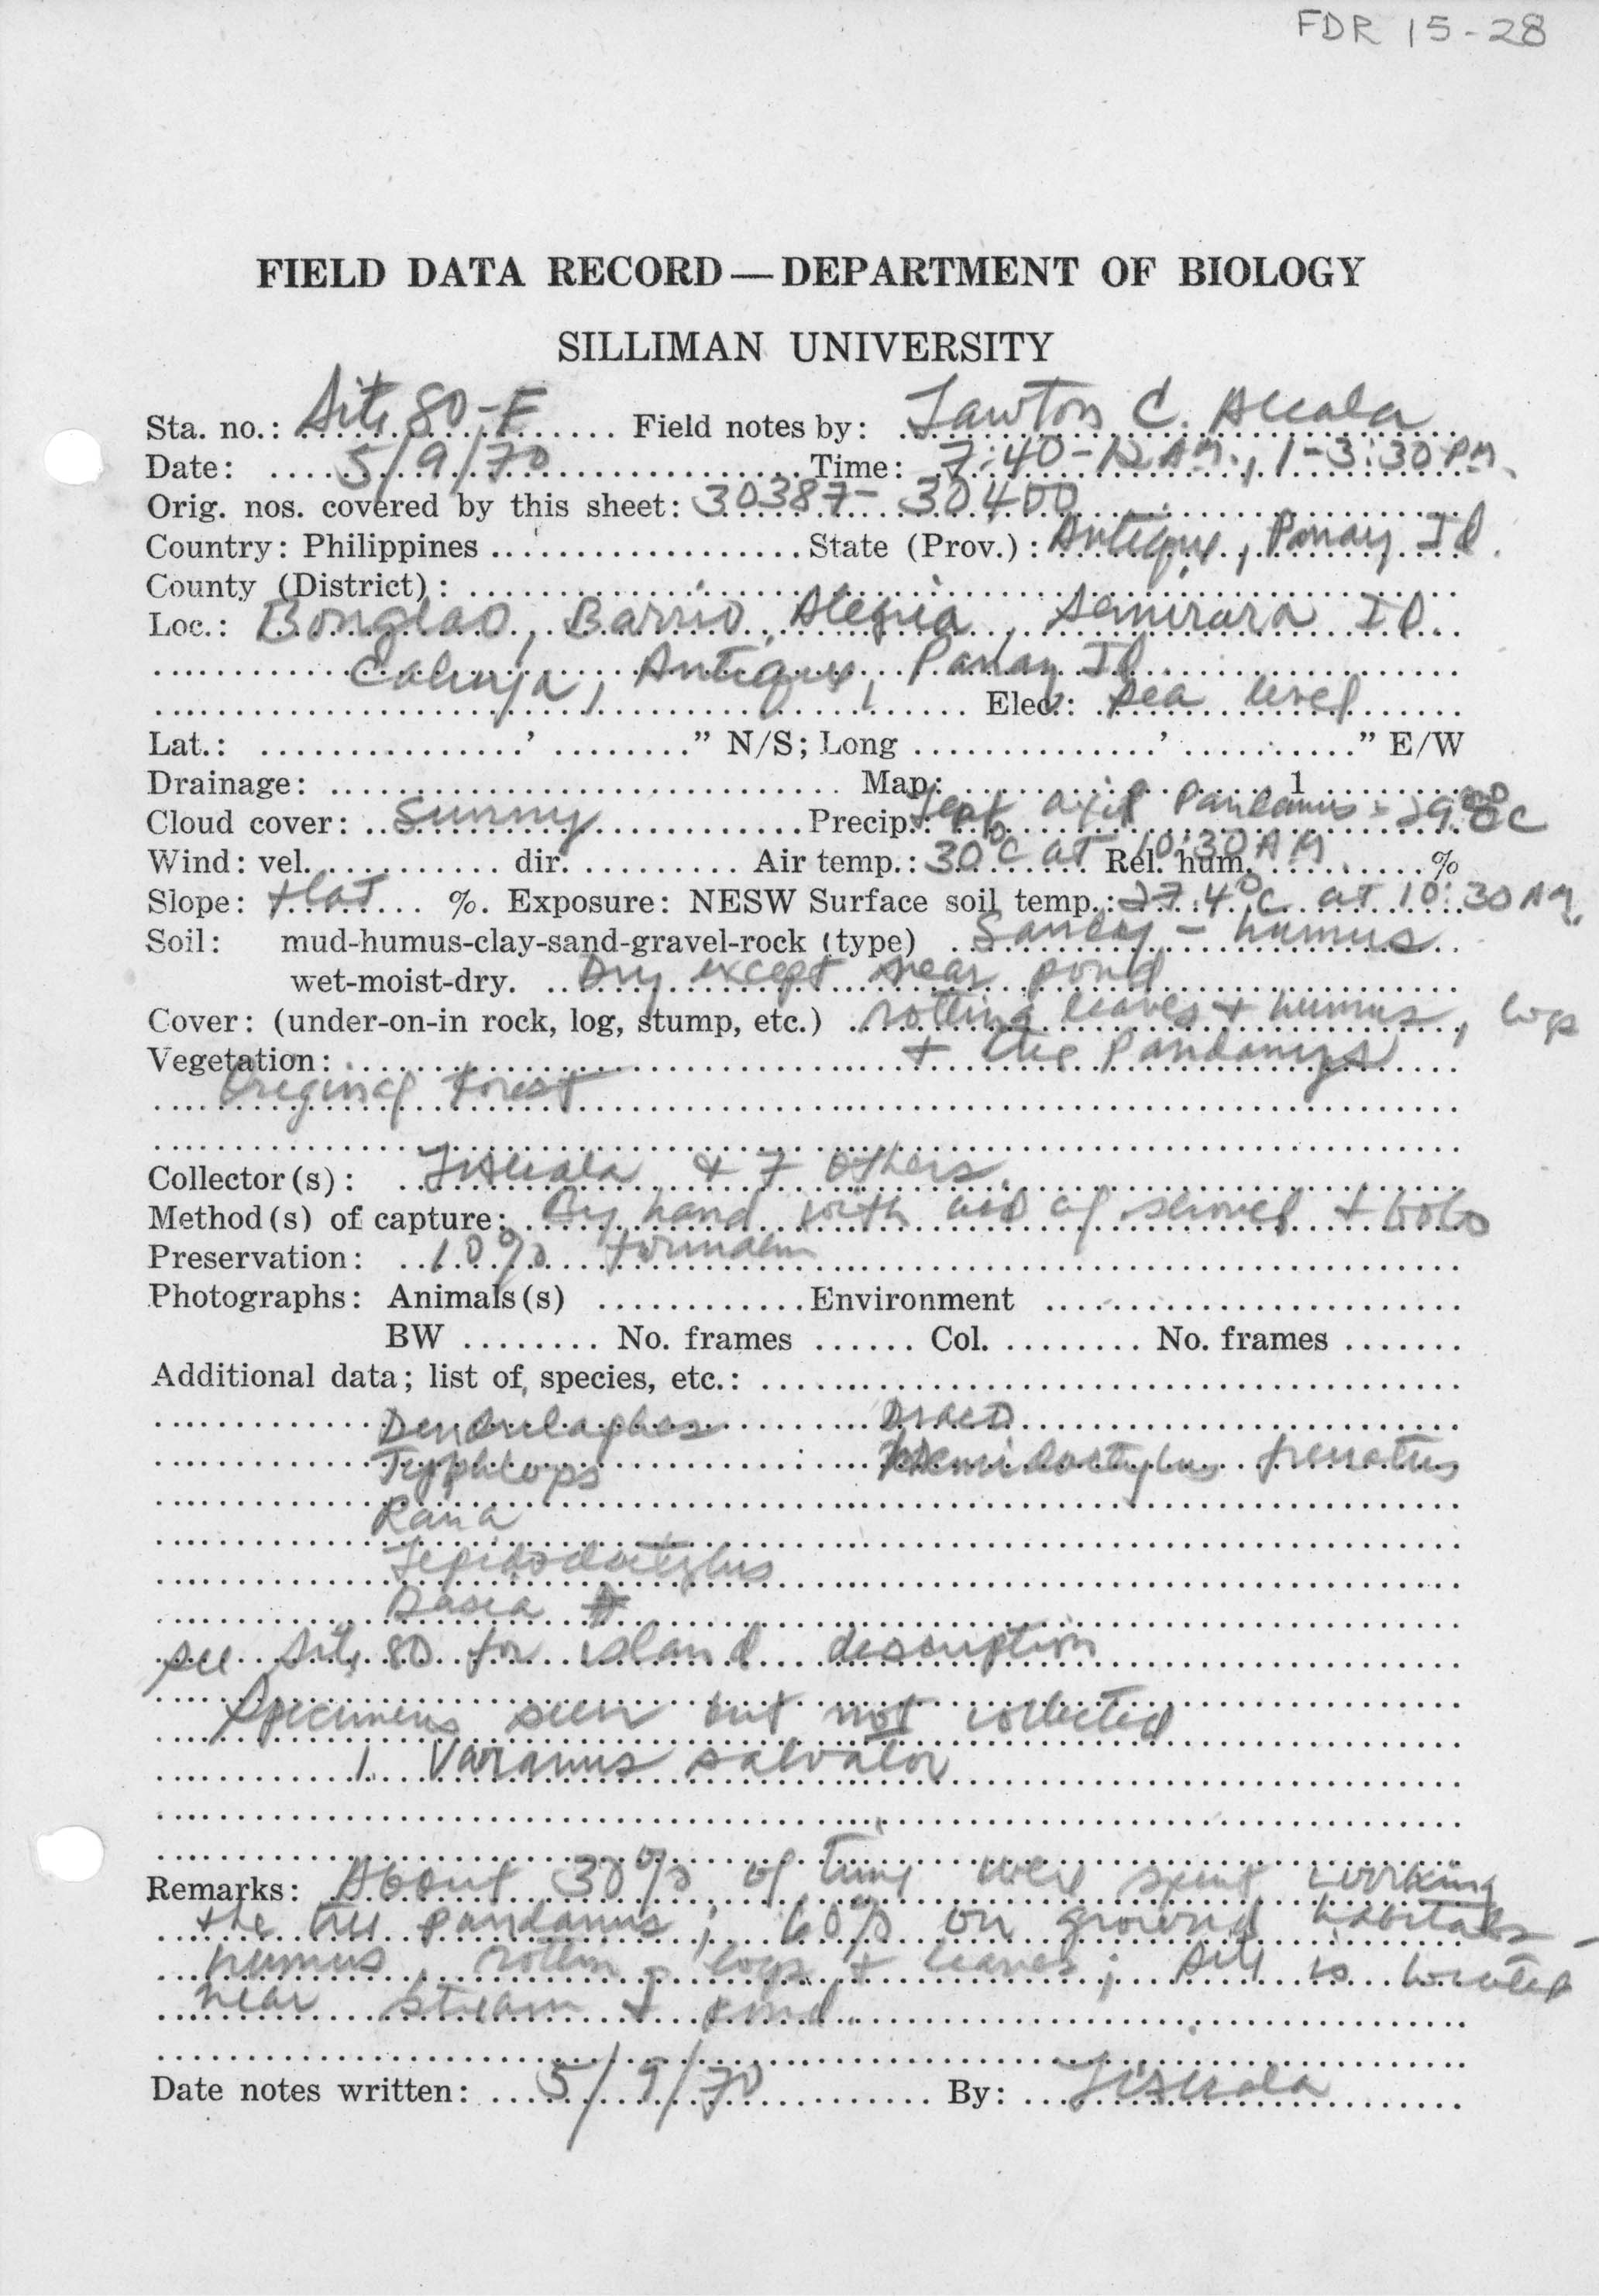 FDR 15-28
FIELD DATA RECORD — DEPARTMENT OF BIOLOGY
SILLIMAN UNIVERSITY
Sta. no.: Site 80-E Field notes by: Lawton C. Alcala
Date: 5/9/70 Time: 7:40-12 AM., 1-3:30 PM.
Orig. nos. covered by this sheet: 30387- 30400
Country: Philippines State (Prov.): Antique, Panay Il.
County (District):
Loc.: Bonglao, Barrio Alegria, Semirara Il.
Caluya, Antique, Panay Il.
Elev.: sea level
Lat.: ' " N/S; Long ' " E/W
Drainage: Map: 1
Cloud cover: Sunny Precip.: Leaf axil Pandanus = °C
Wind: vel. dir. Air temp.: 30°C at 10:30 AM Rel. hum. %
Slope: flat %. Exposure: NESW Surface soil temp.: 27.4°C at 10:30 AM.
Soil: mud-humus-clay-sand-gravel-rock (type) Sandy - humus
wet-moist-dry. Dry except near pond
Cover: (under-on-in rock, log, stump, etc.) rotting leaves + humus, logs
+ tree Pandanus
Vegetation:
Original forest
Collector(s): LAlcala & 7 others.
Method(s) of capture: By hand with aid of shovel + bolo
Preservation: 10% formalin
Photographs: Animals(s) Environment
BW No. frames Col. No. frames
Additional data; list of species, etc.:
Dendrelaphes Draco
Typhlops Hemidactylus frenatus
Rana
Lepidodactylus
Dasia
see Site 80 for island description
Specimens seen but not collected
1. Varanus salvator
Remarks: About 30% of time were spent working
the tree pandanus; 60% on ground habitats -
humus, rotten logs + leaves; site is located
near stream & pond.
Date notes written: 5/9/70 By: LCAlcala